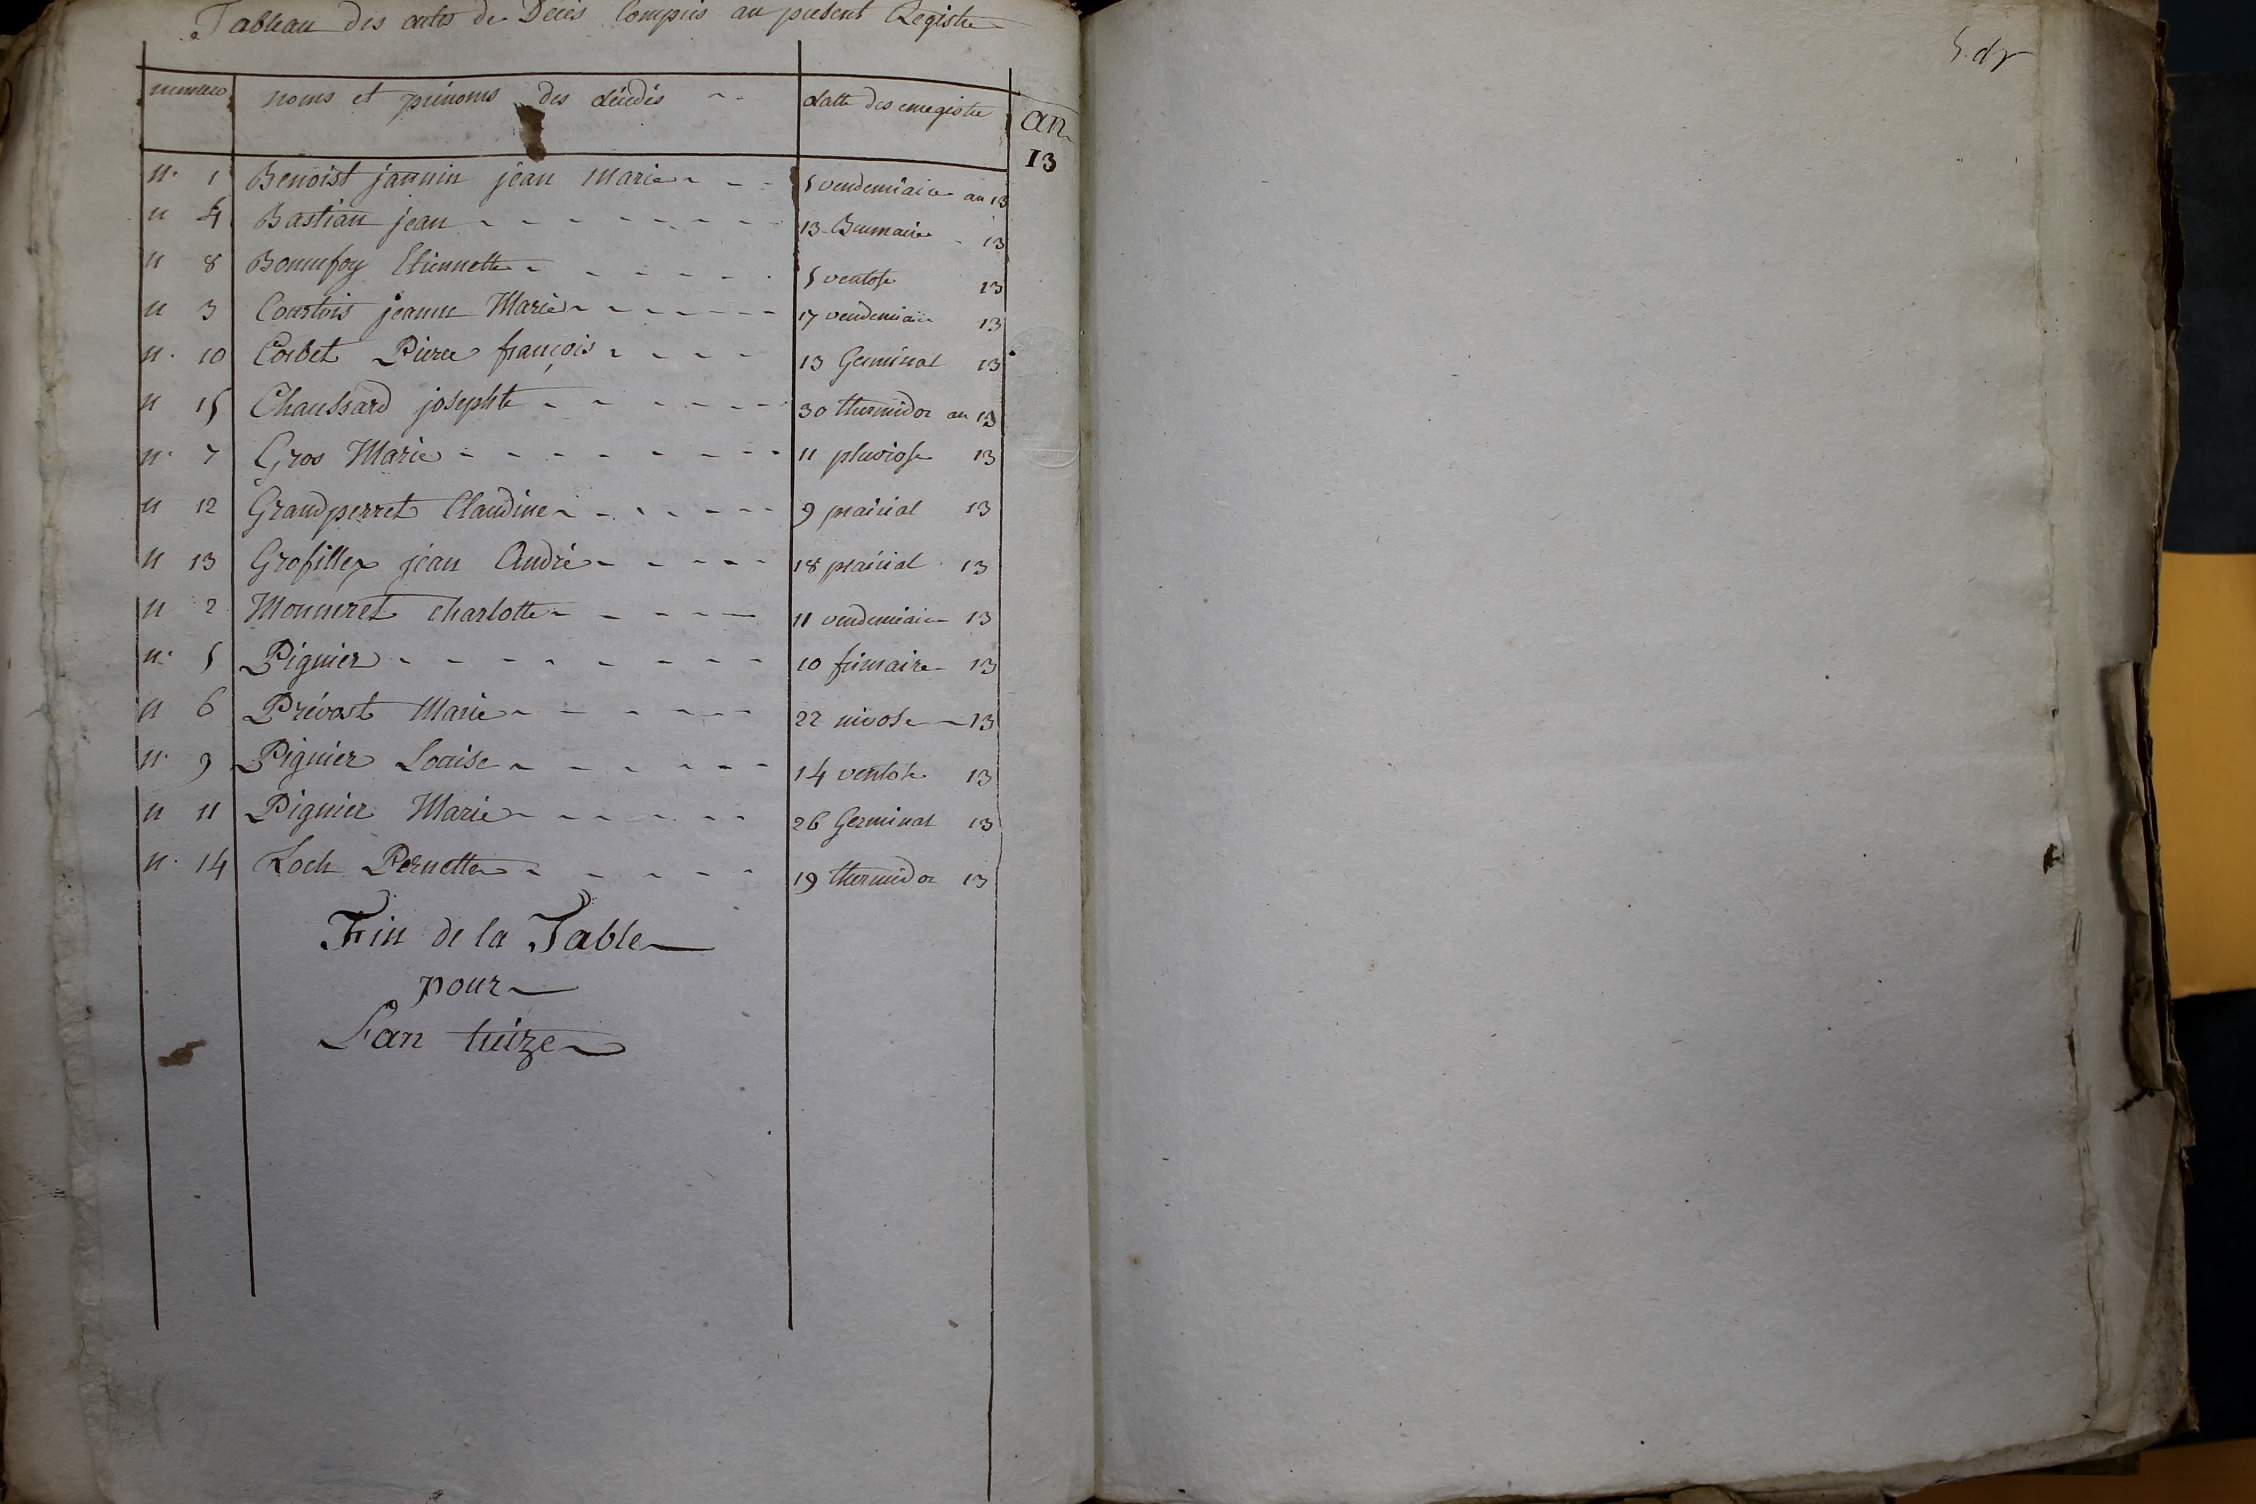 Tableau des actes de Décès Compris au présent Registre
numero noms et prénoms des décédés datte des enregistre
an
13
n. 1 Benoist jannin jean Marie 5 vendemiaire an 13
n 4 Bastian jean 13 Brumaire 13
n 8 Bonnefoy Etiennette 5 ventose 13
n 3 Courtois jeanne Marie 17 vendemiaire 13
n. 10 Corbet Pierre françois 13 Germinal 13
n 15 Chaussard josephte 30 thermidor an 13
n. 7 Gros Marie 11 pluviose 13
n 12 Grandperret Claudine 9 prairial 13
n 13 Grosfillex jean André 18 prairial 13
n 2 Monneret charlotte 11 vendemiaire 13
n. 5 Piguier 10 frimaire 13
n 6 Prévost Marie 22 nivose 13
n. 9 Piguier Louise 14 ventose 13
n 11 Piguier Marie 26 Germinal 13
n. 14 Roch Pernette 19 thermidor 13
Fin de la Table
pour
Lan treize